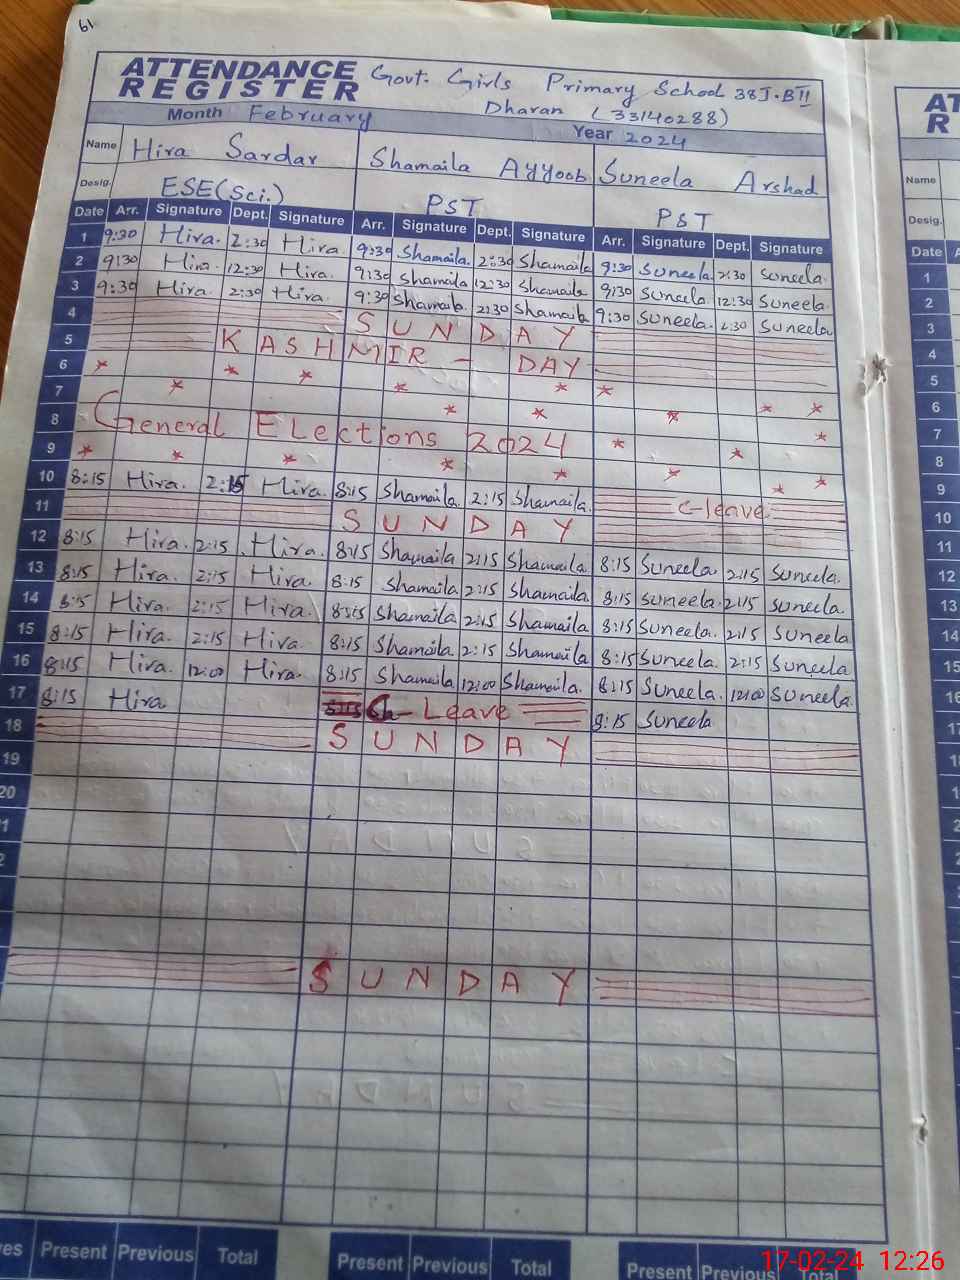 61
ATTENDANCE REGISTER Govt. Girls Primary School 38I.BII
Dharan (33140288)
Month February Year 2024
Name Hira Sardar Shamaila Ayyoob Suneela Arshad
Desig. ESE(Sci.) PST PST
Date Arr. Signature Dept. Signature Arr. Signature Dept. Signature Arr. Signature Dept. Signature
1 9:30 Hira. 2:30 Hira 9:30 Shamaila. 2:30 Shamaila 9:30 Suneela 2:30 Suneela.
2 9:30 Hira. 12:30 Hira. 9:30 Shamaila 12:30 Shamaila 9:30 Suneela 12:30 Suneela.
3 9:30 Hira. 2:30 Hira. 9:30 Shamaila 2:30 Shamaila 9:30 Suneela. 2:30 Suneela
4 SUNDAY
5 KASHMIR - DAY
6
7
8 General Elections 2024
9
10 8:15 Hira. 2:15 Hira. 8:15 Shamaila. 2:15 Shamaila. C-leave
11 SUNDAY
12 8:15 Hira. 2:15 Hira. 8:15 Shamaila 2:15 Shamaila. 8:15 Suneela 2:15 Suneela.
13 8:15 Hira. 2:15 Hira. 8:15 Shamaila 2:15 Shamaila. 8:15 Suneela. 2:15 Suneela.
14 8:15 Hira. 2:15 Hira. 8:15 Shamaila 2:15 Shamaila 8:15 Suneela. 2:15 Suneela
15 8:15 Hira. 2:15 Hira. 8:15 Shamaila 2:15 Shamaila 8:15 Suneela. 2:15 Suneela
16 8:15 Hira. 12:00 Hira. 8:15 Shamaila 12:00 Shamaila. 8:15 Suneela. 12:00 Suneela.
17 8:15 Hira Leave 8:15 Suneela
18 SUNDAY
19
20
SUNDAY
Present Previous Total Present Previous Total Present Previous Total
AT
R
Name
Desig.
Date A
1
2
3
4
5
6
7
8
9
10
11
12
13
14
15
16
17
17-02-24 12:26